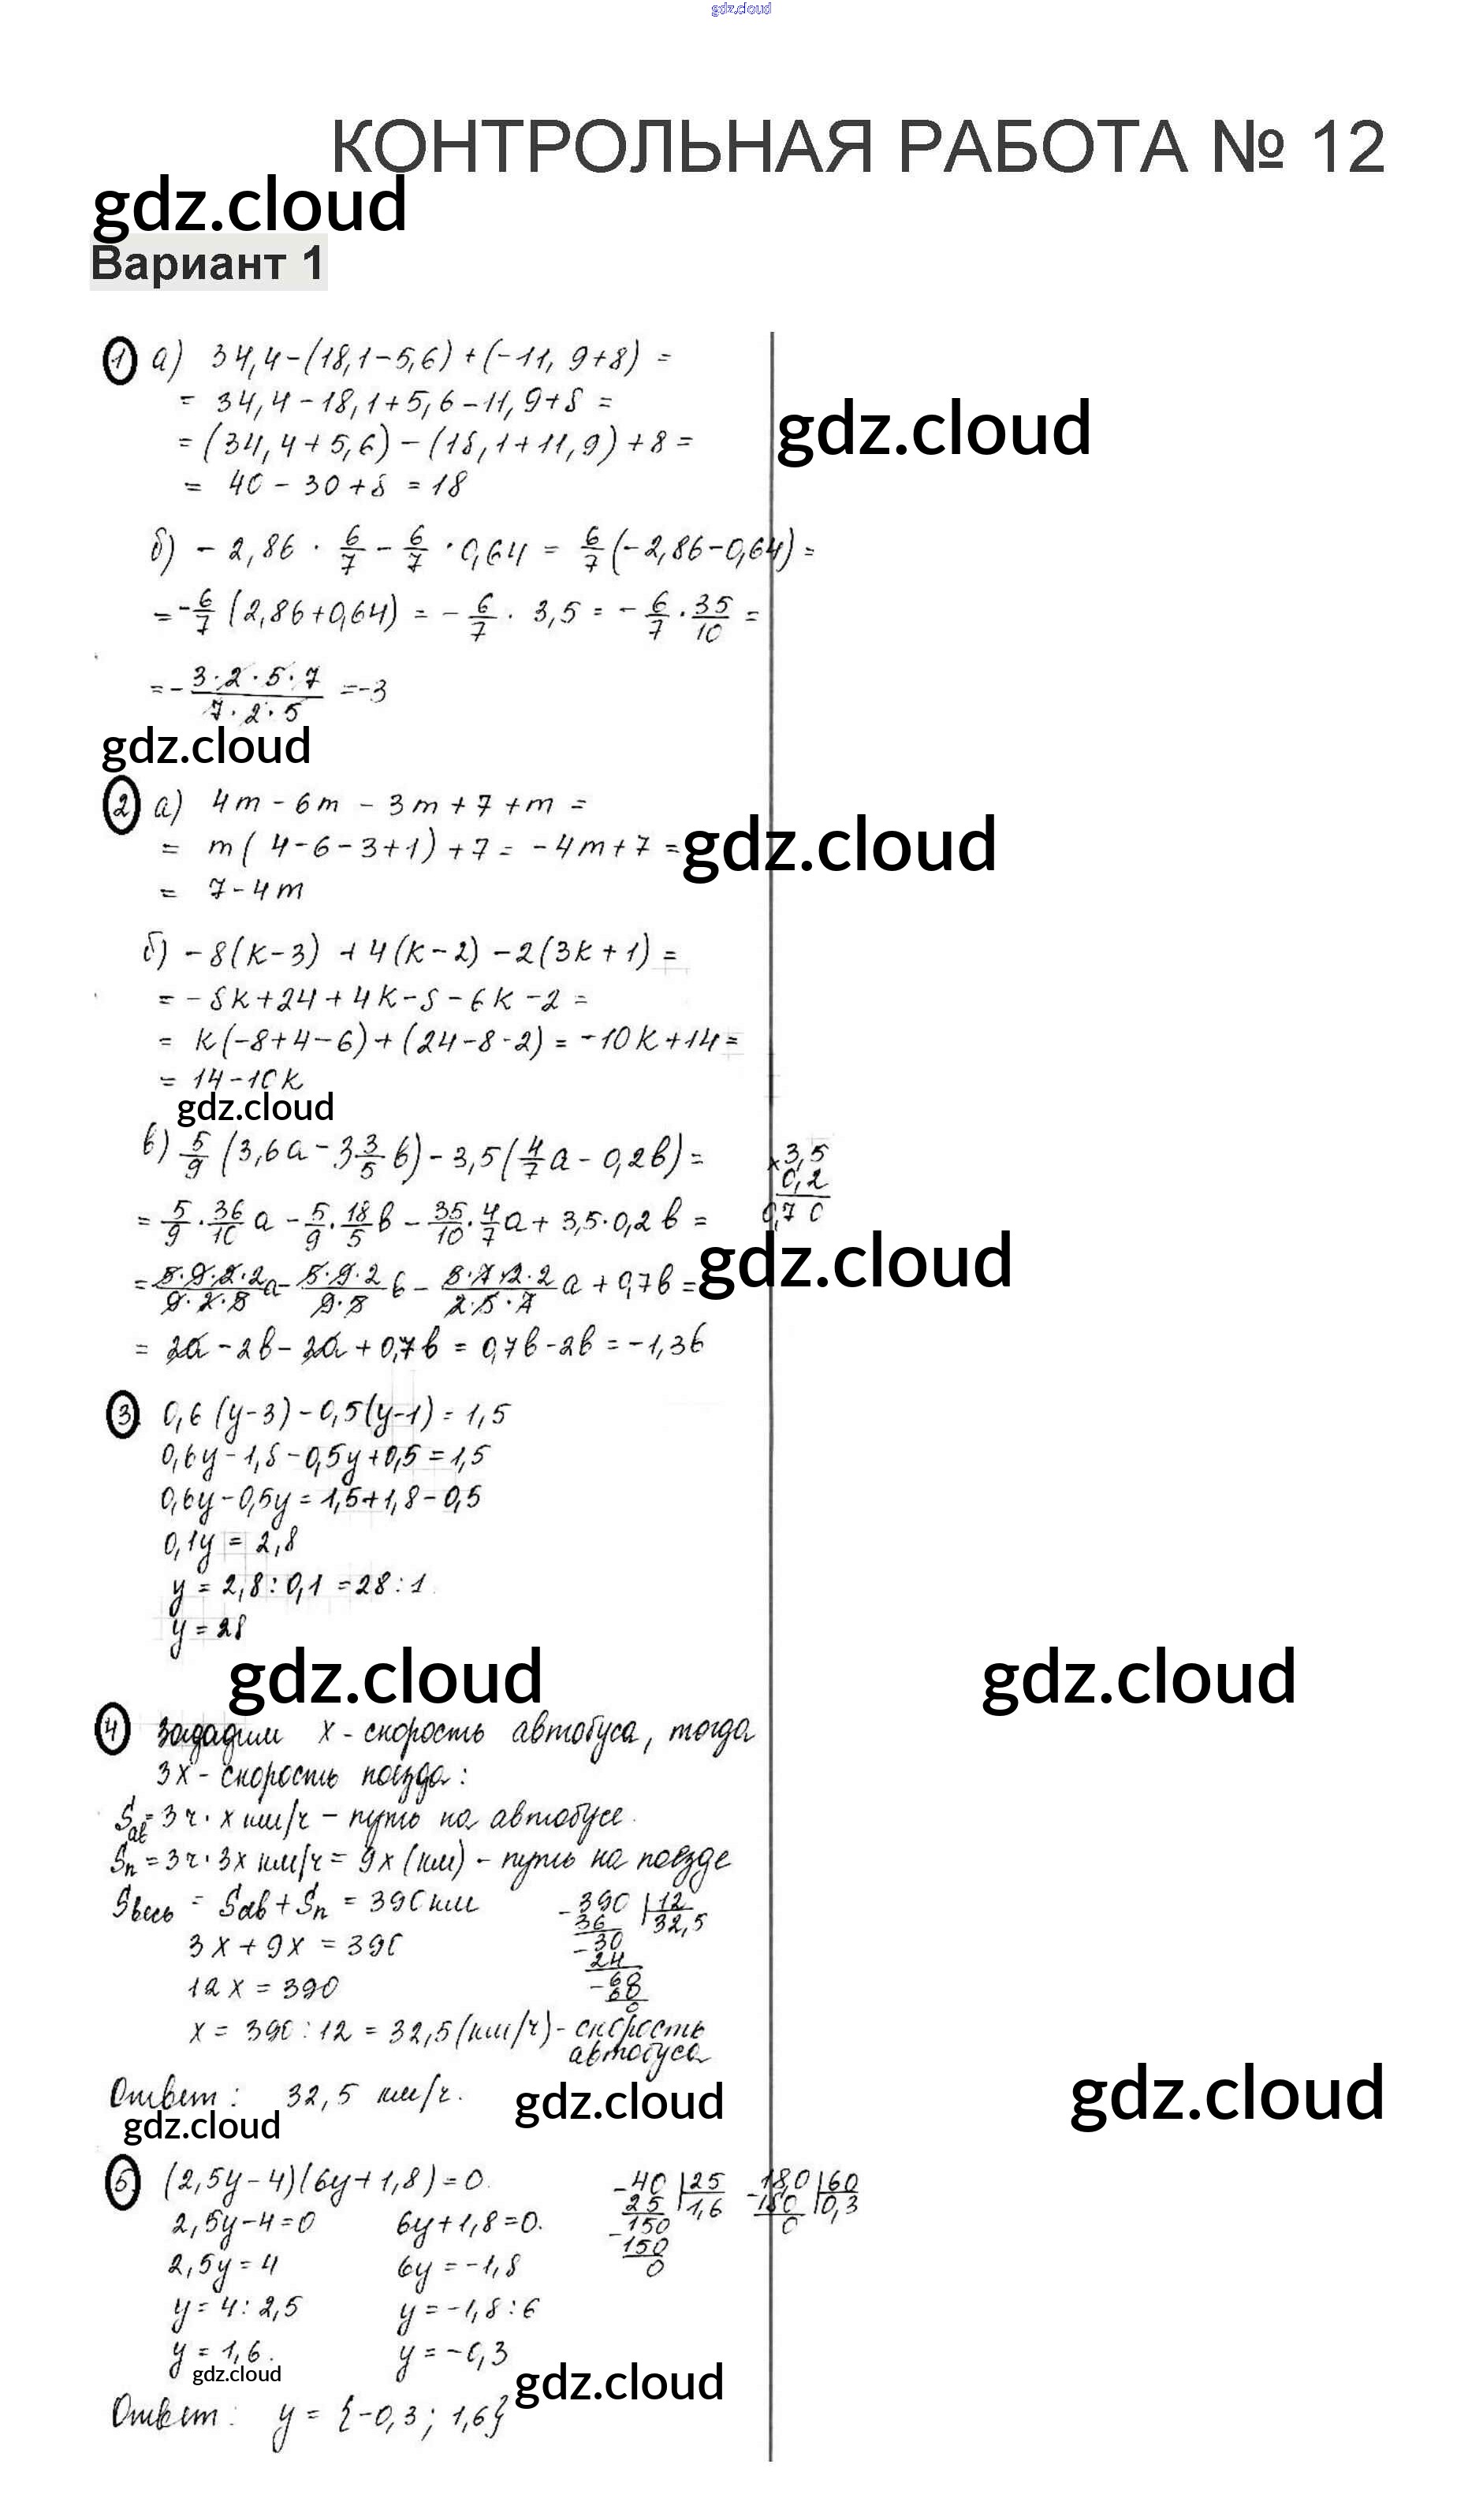 gdz.cloud
КОНТРОЛЬНАЯ РАБОТА № 12
gdz.cloud
Вариант 1
1 а) 34,4-(18,1-5,6)+(-11,9+8) =
= 34,4-18,1+5,6-11,9+8 =
gdz.cloud
= (34,4+5,6)-(18,1+11,9)+8 =
= 40-30+8 = 18
б) -2,86 · 6/7 - 6/7 · 0,64 = 6/7 (-2,86-0,64) =
= -6/7 (2,86+0,64) = -6/7 · 3,5 = -6/7 · 35/10 =
= - 3·2·5·7 / 7·2·5 = -3
gdz.cloud
2 а) 4m - 6m - 3m + 7 + m =
= m( 4-6-3+1) + 7 = -4m+7 =
gdz.cloud
= 7-4m
б) -8(k-3) + 4(k-2) -2(3k+1) =
= -8k+24+4k-8-6k-2 =
= k(-8+4-6)+(24-8-2) = -10k+14 =
= 14-10k
gdz.cloud
в) 5/9 (3,6a - 3 3/5 b) - 3,5(4/7 a - 0,2b) =
= 5/9 · 36/10 a - 5/9 · 18/5 b - 35/10 · 4/7 a + 3,5·0,2 b =
× 3,5
0,2
0,70
gdz.cloud
= 5·9·2·2 / 9·2·5 a - 5·9·2 / 9·5 b - 5·7·2·2 / 2·5·7 a + 0,7b =
= 2a - 2b - 2a + 0,7b = 0,7b - 2b = -1,3b
3 0,6 (y-3) - 0,5(y-1) = 1,5
0,6y - 1,8 - 0,5y + 0,5 = 1,5
0,6y - 0,5y = 1,5+1,8-0,5
0,1y = 2,8
y = 2,8 : 0,1 = 28 : 1
y = 28
gdz.cloud
gdz.cloud
4 Зададим x - скорость автобуса, тогда
3x - скорость поезда:
Sав = 3ч · x км/ч - путь на автобусе.
Sп = 3ч · 3x км/ч = 9x (км) - путь на поезде
Sвесь = Sав + Sп = 390 км
3x + 9x = 390
12x = 390
x = 390 : 12 = 32,5 (км/ч) - скорость
автобуса
- 390 | 12
36 32,5
- 30
24
- 60
60
0
Ответ: 32,5 км/ч.
gdz.cloud
gdz.cloud
gdz.cloud
5 (2,5y-4)(6y+1,8) = 0.
2,5y-4=0 6y+1,8=0.
2,5y=4 6y = -1,8
y = 4 : 2,5 y = -1,8 : 6
y = 1,6. y = -0,3
- 40 | 25
25 1,6
- 150
150
0
- 18,0 | 60
180 0,3
0
gdz.cloud
gdz.cloud
Ответ: y = {-0,3; 1,6}